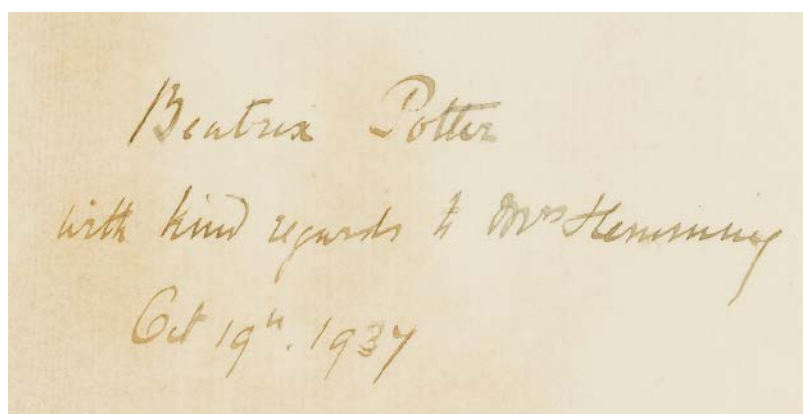 Beatrix Potter
with kind regards to Mrs Hemming
Oct 19th. 1937